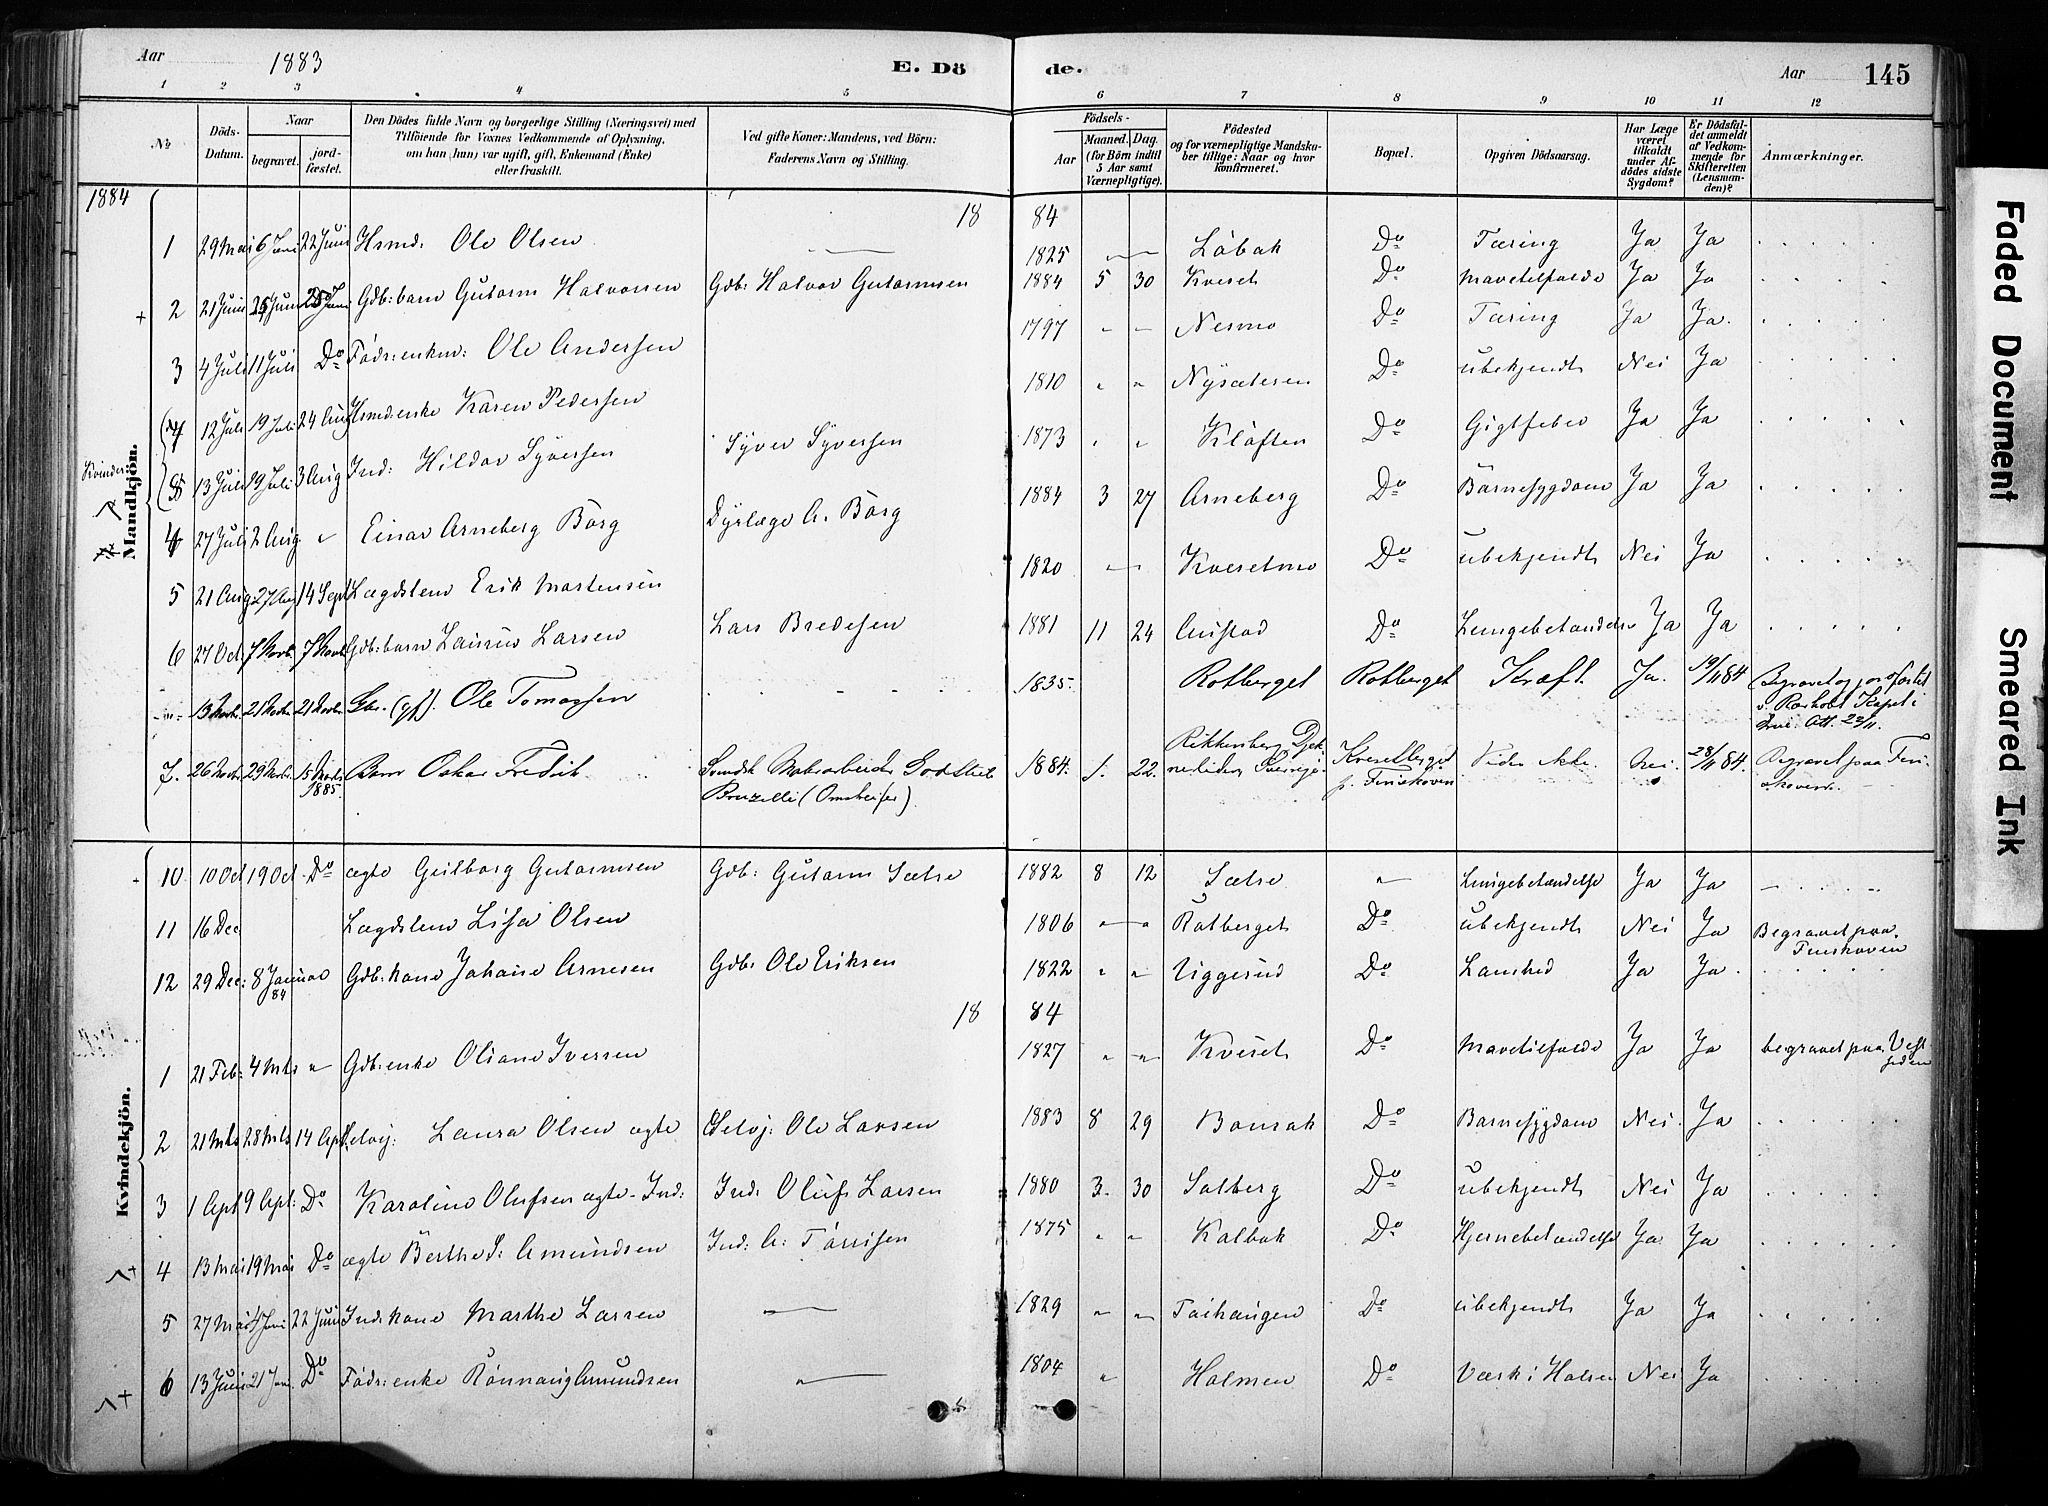 Aar 1883 E. Dö de. Aar 145
1 2 3 4 5 6 7 8 9 10 11 12
Nr.
Döds-Datum.
Naar
begravet.
jord-fæstet.
Den Dödes fulde Navn og borgerlige Stilling (Næringsvei) med
Tilföiende for Voxnes Vedkommende af Oplysning,
om han (hun) var ugift, gift, Enkemand (Enke)
eller fraskilt.
Ved gifte Koner: Mandens, ved Börn:
Faderens Navn og Stilling.
Födsels-
Aar
Maaned. Dag.
(for Börn indtil
5 Aar samt
Værnepligtige).
Födested
og for værnepligtige Mandska-
ber tillige: Naar og hvor
konfirmeret.
Bopæl.
Opgiven Dödsaarsag.
Har Læge
været
tilkaldt
under Af-
dödes sidste
Sygdom?
Er Dödsfal-
det anmeldt
af Vedkom-
mende for
Skifteretten
(Lensman-
den)?
Anmærkninger.
1884
Mandkjön.
Kvinder
18 84
1 29 Mai 6 Juni 22 Juni Hsmd. Ole Olsen 1825 Löbak Do Tæring Ja Ja
2 21 Juni 25 Juni Gdb: barn Gutorm Halvorsen Gdb: Halvor Gutormsen 1884 5 30 Kveset Do Mavetilfælde Ja Ja
3 4 Juli 11 Juli Do Födr: enkm: Ole Andersen 1797 Nesmo Do Tæring Ja Ja
12 Juli 19 Juli 24 Aug Hsmd: enke Karen Pedersen 1810 Nysæteren Do ubekjendt Nei Ja
8 13 Juli 19 Juli 3 Aug Ind: Hilda Syversen Syver Syversen 1873 Klöften Do Gigtfeber Ja Ja
4 27 Juli 2 Aug " Einar Arneberg Borg Dyrlæge A. Borg 1884 3 27 Arneberg Do Barnesygdom Ja Ja
5 21 Aug 27 Aug 14 Sept Lægdslem Erik Mortensen 1820 Kvesetmo Do ubekjendt Nei Ja
6 27 Oct 7 Novb. 7 Novb. Gdb: barn Laurin Larsen Lars Bredesen 1881 11 24 Austad Do Lungebetændelse Ja Ja
13 Novbr. 21 Novbr. 21 Novbr. Gbr. (gf). Ole Tomassen 1835. Rotberget Rotberget Kræft. Ja. 19/11 84 Begravet og jordfæstet
v. Rørholt Kapel i
Att. 22/11.
7. 26 Novbr. 29 Novbr. 15 Marts 1885. Barn Oskar Fredrik Svensk Malerarbeider Godtlieb
Bruzelli (Omstreifer). 1884. 1. 22. Rikkenberg, Djek-
nerliden Sverrige. Kvesetberget
p. Finskoven Vides ikke. Nei. 28/11 84. Begravet paa Fin-
skoven.
Kvindekjön.
10 10 Oct 19 Oct Do ægte Guilborg Gutormsen Gdb: Gutorm Sætre 1882 8 12 Sætre " Lungebetændelse Ja Ja
11 16 Dec Lægdslem Lisa Olsen 1806 Rotberget Do ubekjendt Nei Ja Begravet paa
Finskoven
12 29 Dec: 8 Januar 84 Gdb: kone Johane Arnesen Gdb: Ole Eriksen 1822 " " Viggesund Do Lamhed Ja Ja
18 84
1 21 Feb: 4 Mts " Gdb: enke Oliane Iversen 1827 " Kveset Do Mavetilfælde Ja Ja begravet paa Vest
siden
2 21 Mts 28 Mts 14 Apl Selvej: Laura Olsen ægte Selvj: Ole Larsen 1883 8 29 Bonsak Do Barnesygdom Nei Ja
3 1 Apl 9 Apl: Do Karoline Olufsen ægte Ind: Ind: Oluf Larsen 1880 3. 30 Solberg Do ubekjendt Nei Ja
4 13 Mai 19 Mai Do ægte Berthe S: Amundsen Ind: A: Törrisen 1875 " " Kalbak Do Hjernebetændelse Ja Ja
5 27 Mai 4 Juni 22 Juni Inds kone Marthe Larsen 1829 " " Taihaugen Do ubekjendt Ja Ja
6 13 Juni 21 Juni Do Födr: enke Rönnaug Amundsen 1804 " Holmen Do Værk i Halsen Nei Ja
Faded Document
Smeared Ink